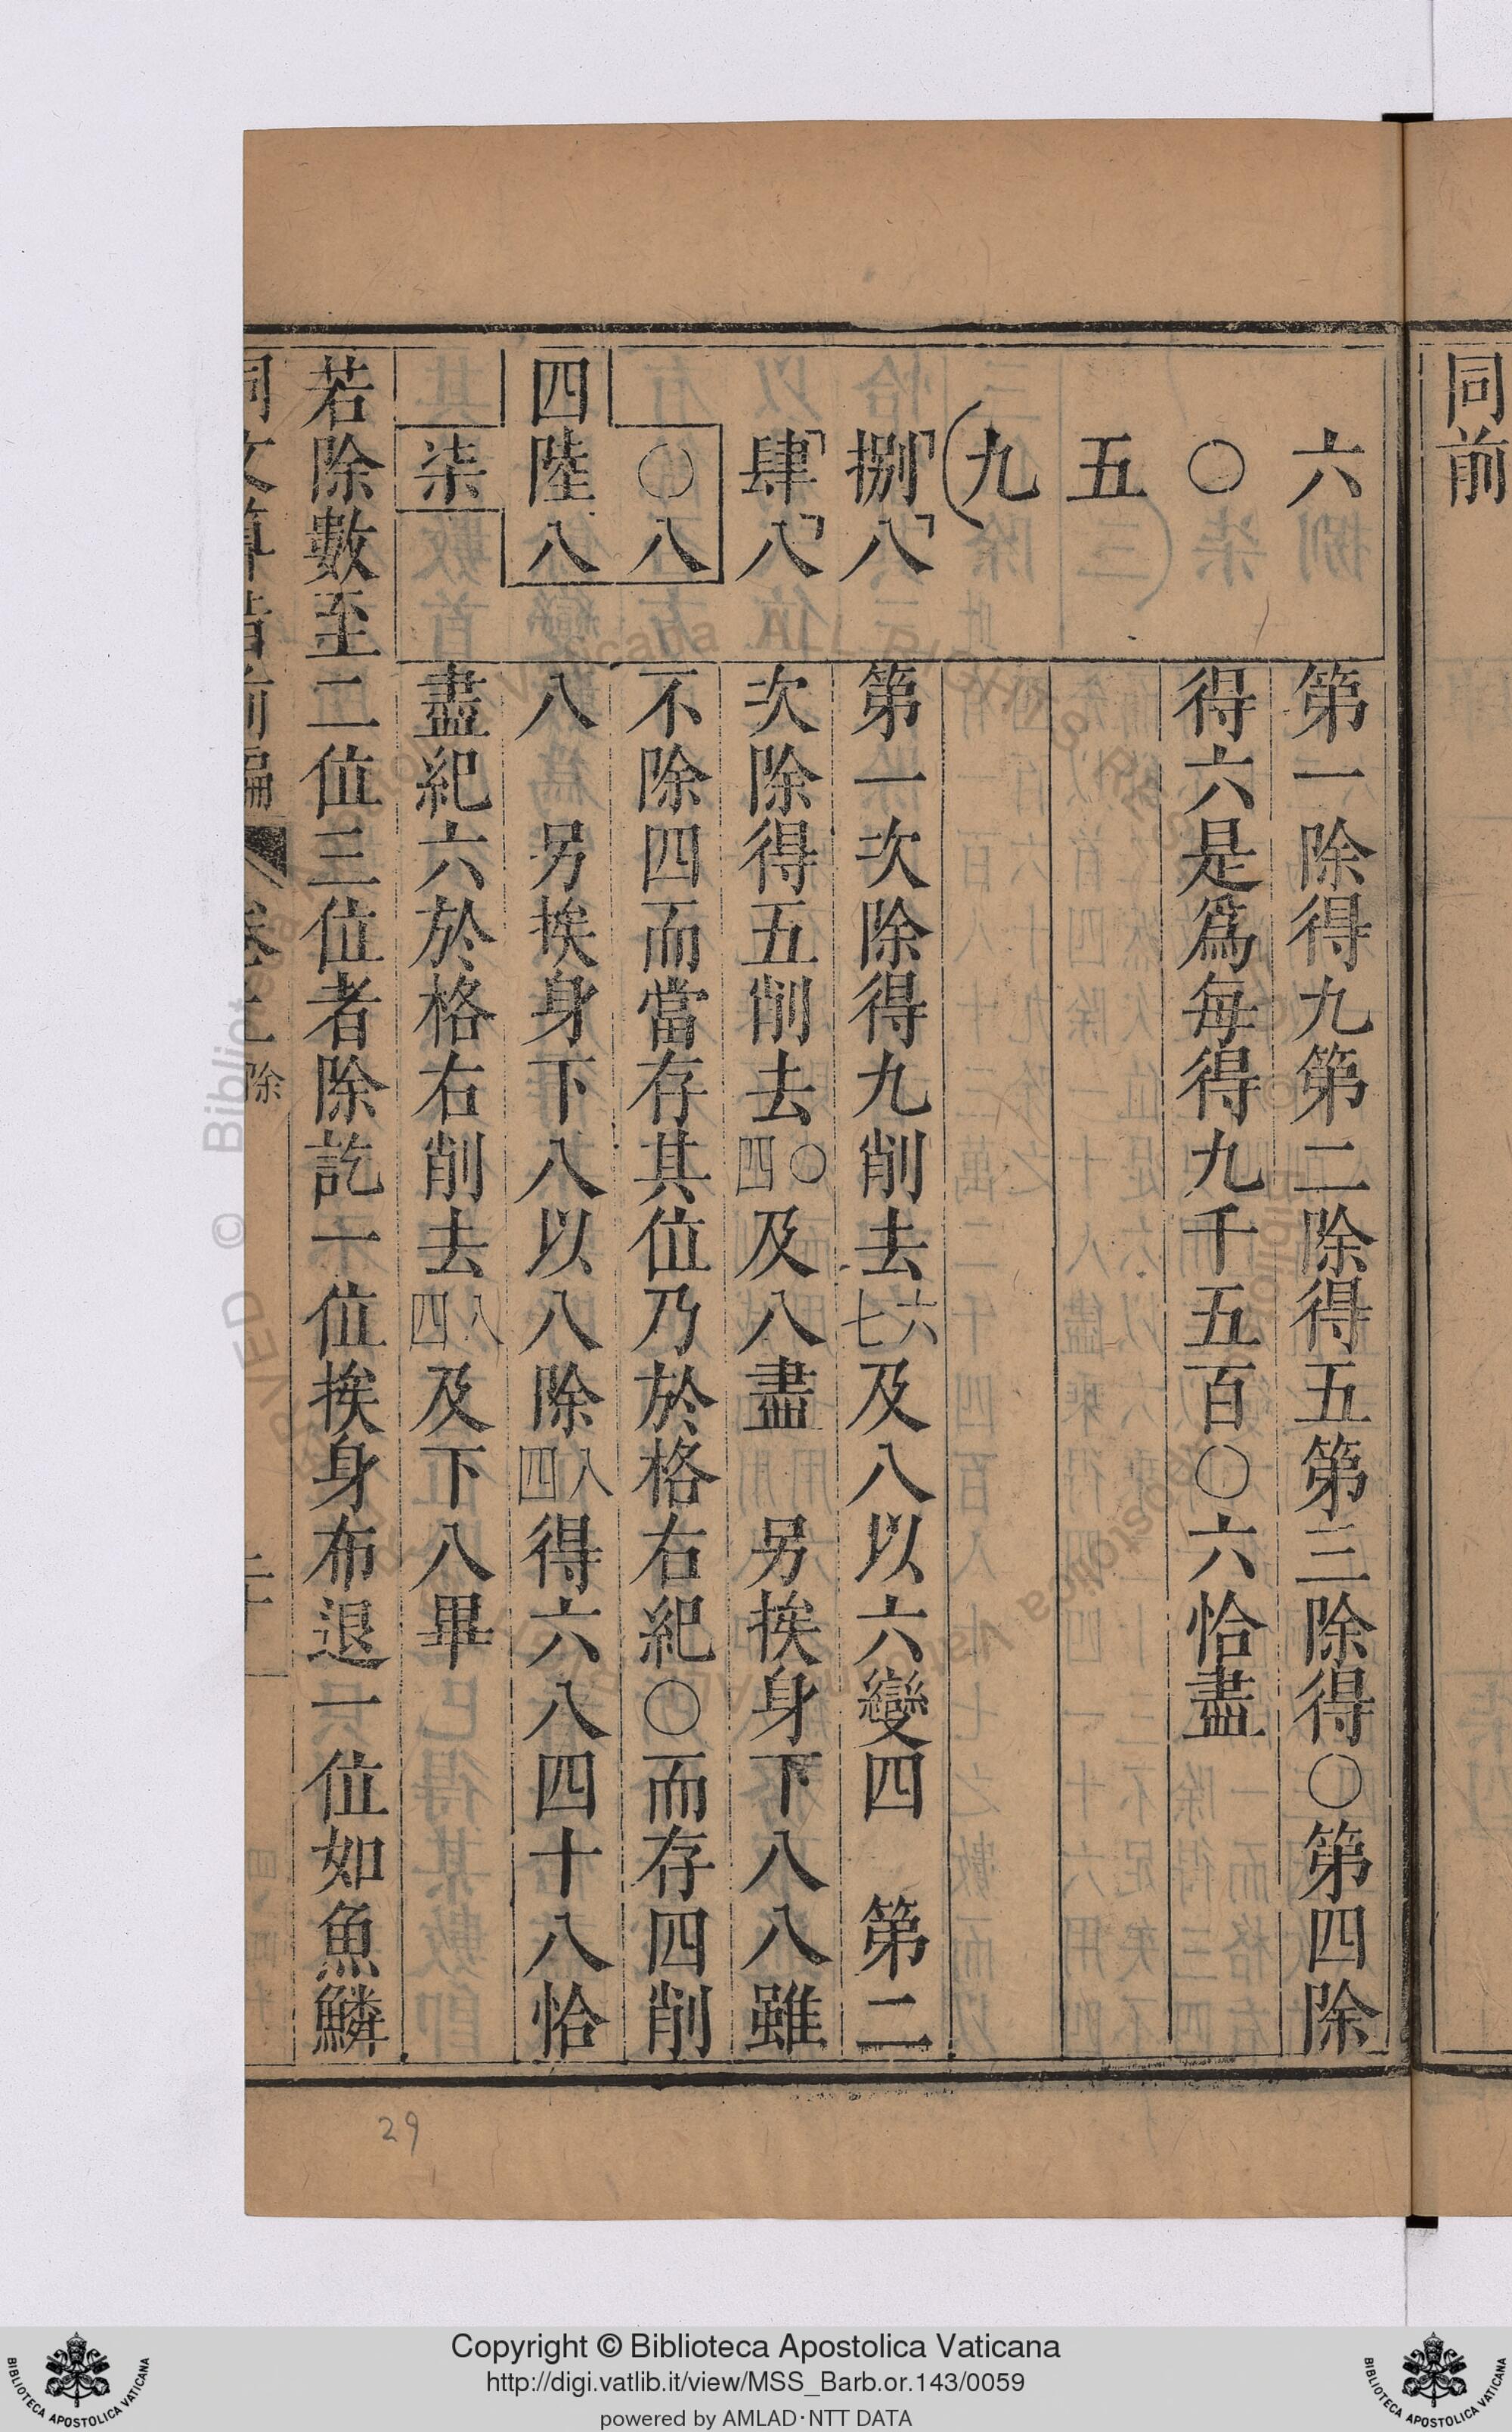 同前
六
〇
五
九
捌八
肆八
〇八
四陸八
柒
第一除得九第二除得五第三除得〇第四除
得六是爲每得九千五百〇六恰盡
第一次除得九削去七六及八以六變四 第二
次除得五削去四〇及八盡 另挨身下八八雖
不除四而當存其位乃於格右紀〇而存四削
八 另挨身下八以八除四八得六八四十八恰
盡紀六於格右削去四八及下八畢
若除數至二位三位者除訖一位挨身布退一位如魚鱗
除
29
Copyright © Biblioteca Apostolica Vaticana
http://digi.vatlib.it/view/MSS_Barb.or.143/0059
powered by AMLAD·NTT DATA
BIBLIOTECA APOSTOLICA VATICANA
BIBLIOTECA APOSTOLICA VATICANA